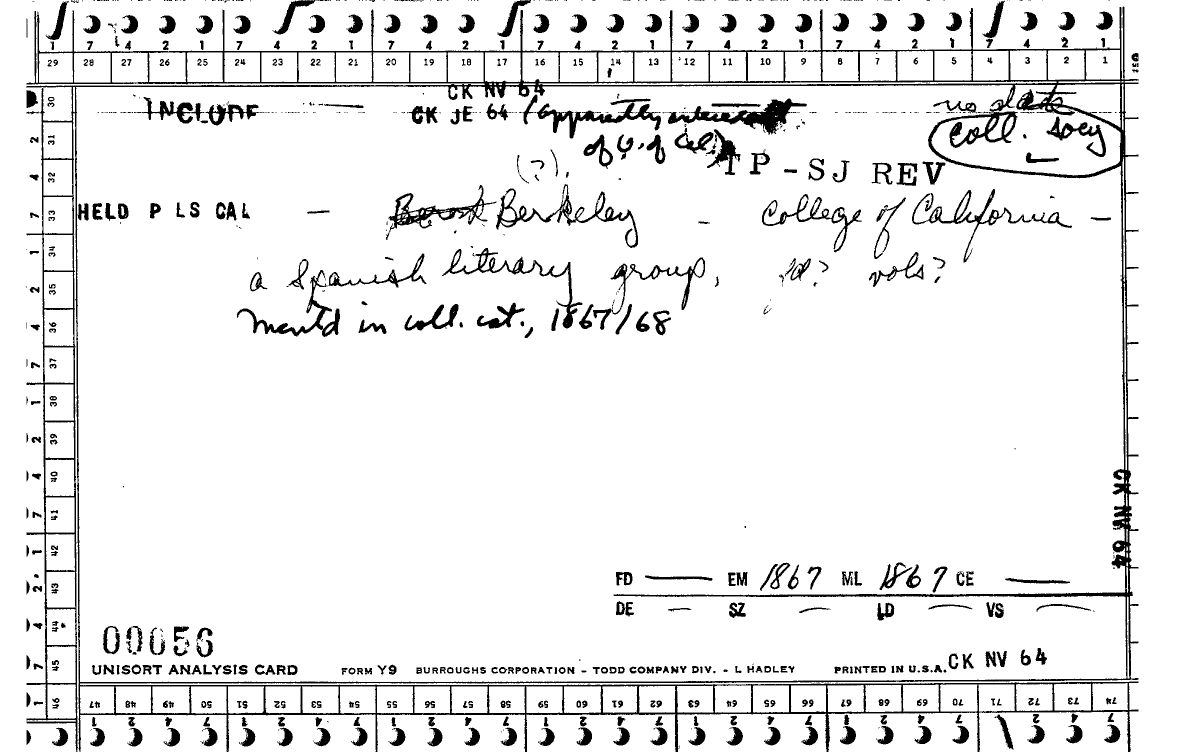 7 4 2 1 7 4 2 1 7 4 2 1 7 4 2 1 7 4 2 1 7 4 2 1 7 4 2 1
29 28 27 26 25 24 23 22 21 20 19 18 17 16 15 14 13 12 11 10 9 8 7 6 5 4 3 2 1
CK NV 64
INCLUDE — CK JE 64 (apparently
no dates
of U. of Cal)
coll. socy
(?)
TP-SJ REV
HELD P LS CAL — Berkeley - College of California -
a Spanish literary group, vols?
Ment'd in coll. cat., 1867/68
CK NV 64
FD — EM 1867 ML 1867 CE —
DE — SZ — LD — VS —
00056
UNISORT ANALYSIS CARD FORM Y9 BURROUGHS CORPORATION - TODD COMPANY DIV. - L HADLEY PRINTED IN U.S.A. CK NV 64
30 31 32 33 34 35 36 37 38 39 40 41 42 43 44 45 46
47 48 49 50 51 52 53 54 55 56 57 58 59 60 61 62 63 64 65 66 67 68 69 70 71 72 73 74